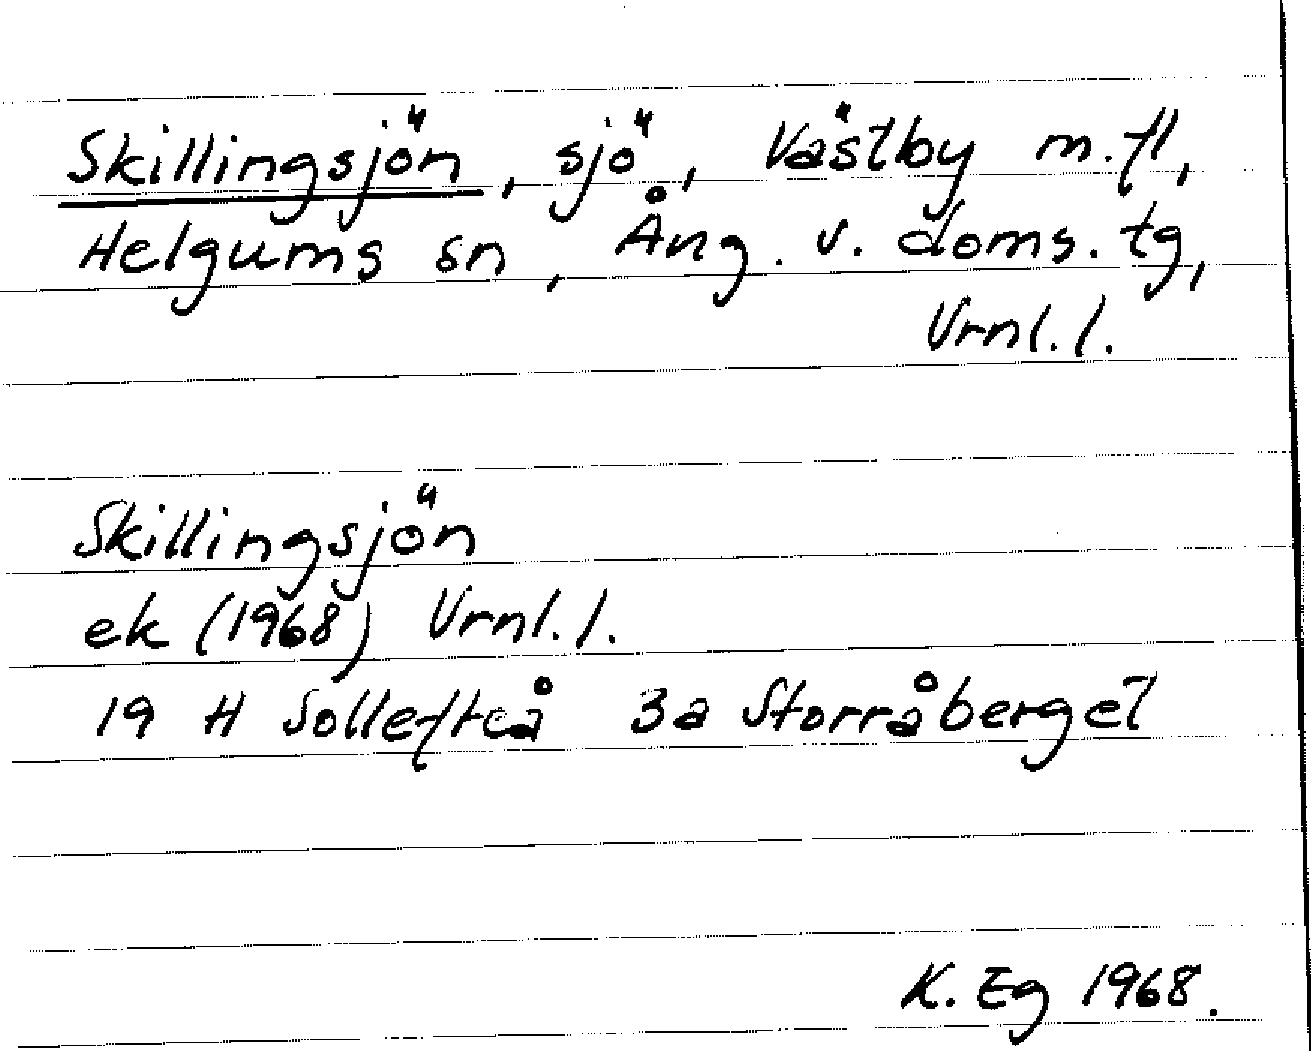 Skillingsjön, sjö, Västby m.fl,
Helgums sn, Ång. v. doms. tg,
Vrnl.l.
Skillingsjön
ek (1968) Vrnl.l.
19 H Sollefteå 3a Storråberget
K. Eg 1968.